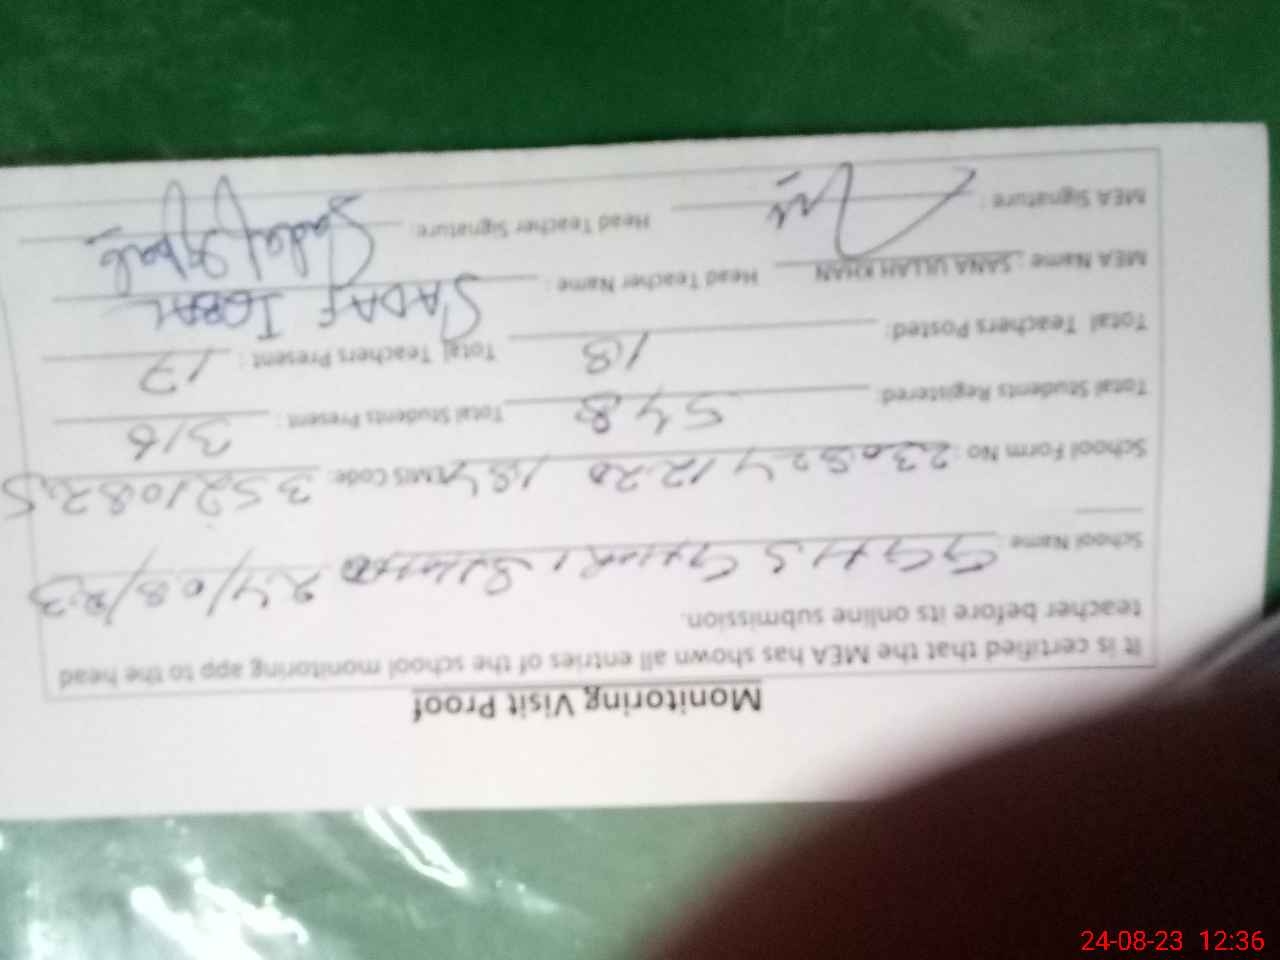 Monitoring Visit Proof
It is certified that the MEA has shown all entries of the school monitoring app to the head
teacher before its online submission.
School Name : GGHS 24/08/23
School Form No : EMIS Code: 35210825
Total Students Registered: 548 Total Students Present : 316
Total Teachers Posted: 18 Total Teachers Present : 17
MEA Name : SANA ULLAH KHAN Head Teacher Name : SADAF IQBAL
MEA Signature : Head Teacher Signature: Sadaf Iqbal
24-08-23 12:36